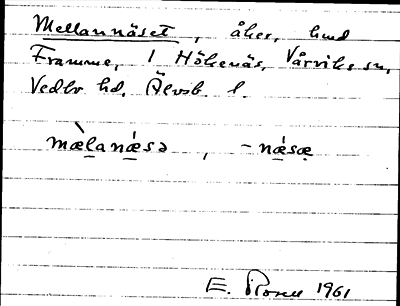 Mellannäset, åker, hmd
Framme, 1 Hökenäs, Vårviks sn,
Vedbo hd. Älvsb. l.
mæ̀lanǽsə, -nǽsæ
E. 1961